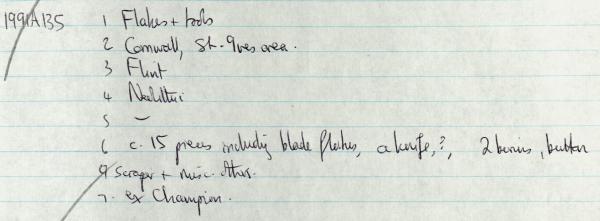 1991A135 1 Flakes + tools
2 Cornwall, St. Ives area.
3 Flint
4 Neolithic
5 –
6 c. 15 pieces including blade flakes, a knife, ?, 2 burins, button
scraper + misc. others.
7. ex Champion.